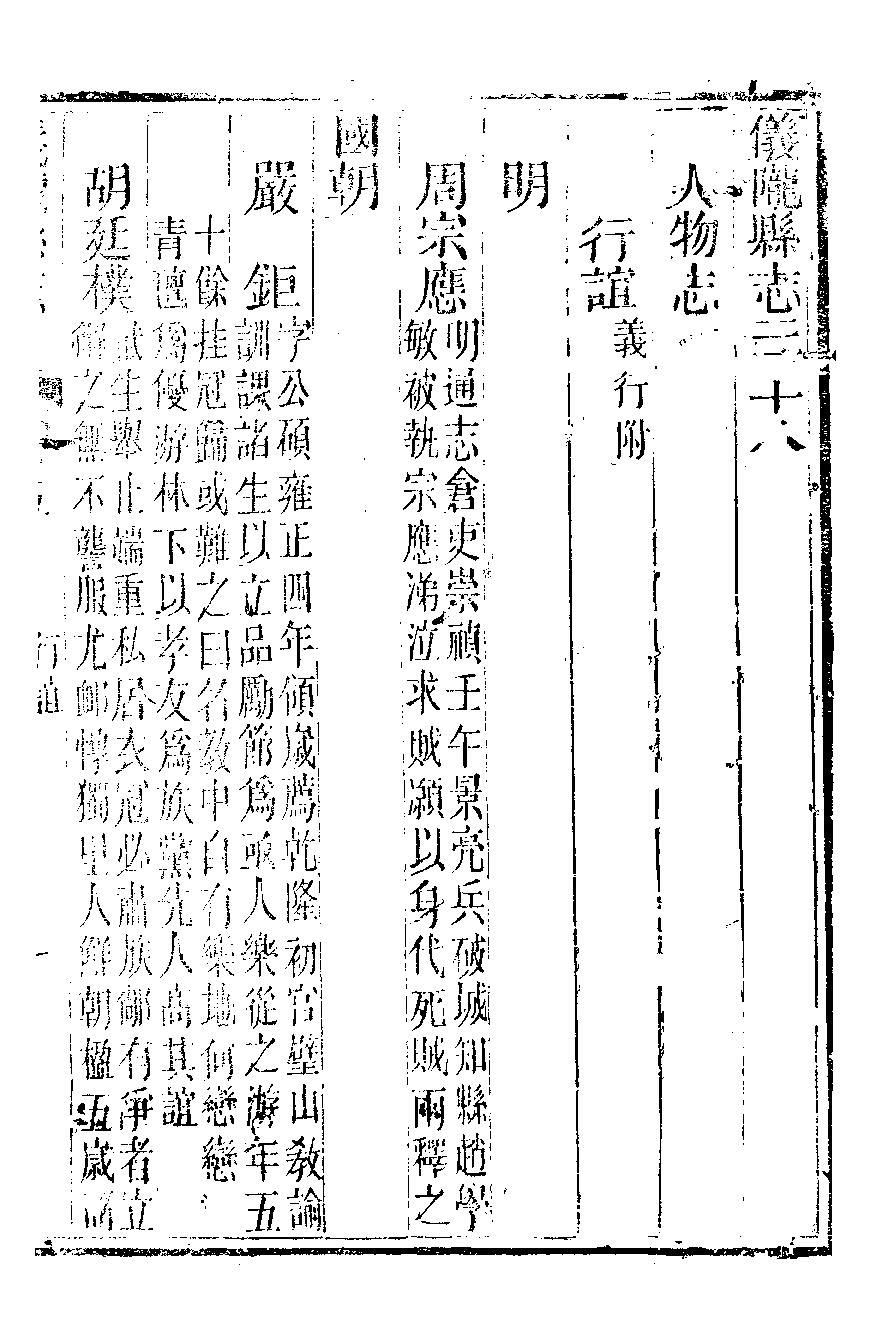 儀隴縣志三十八
人物志
行誼 義行附
明
周宗應 明通志倉吏崇禎壬午景亮兵破城知縣趙學
敏被執宗應涕泣求賊願以身代死賊兩釋之
國朝
嚴 鉅 字公碩雍正四年領歲薦乾隆初官壁山教諭
訓課諸生以立品勵節爲亟人樂從之游年五
十餘挂冠歸或難之曰名教中自有樂地何戀戀
青氊爲優游林下以孝友爲族黨先人高其誼
胡廷樸 生舉止端重私居衣冠必肅族鄰有爭者立
解之無不讋服尤卹惸獨里人鮮朝楹五歲
行誼